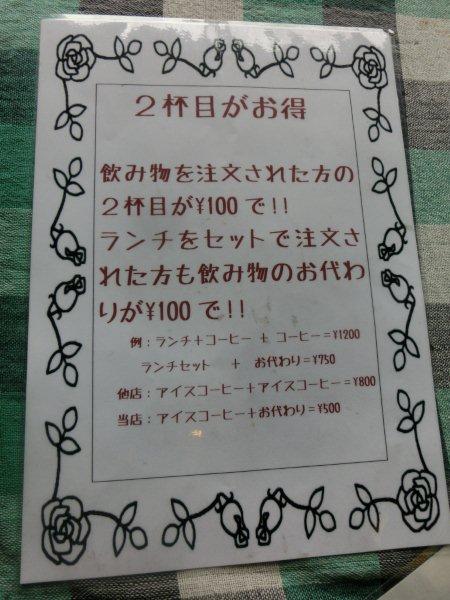 ２杯目がお得
飲み物を注文された方の
２杯目が¥100で!!
ランチをセットで注文さ
れた方も飲み物のお代わ
りが¥100で!!
例：ランチ＋コーヒー ＋ コーヒー＝¥1200
ランチセット ＋ お代わり＝¥750
他店：アイスコーヒー＋アイスコーヒー＝¥800
当店：アイスコーヒー＋お代わり＝¥500